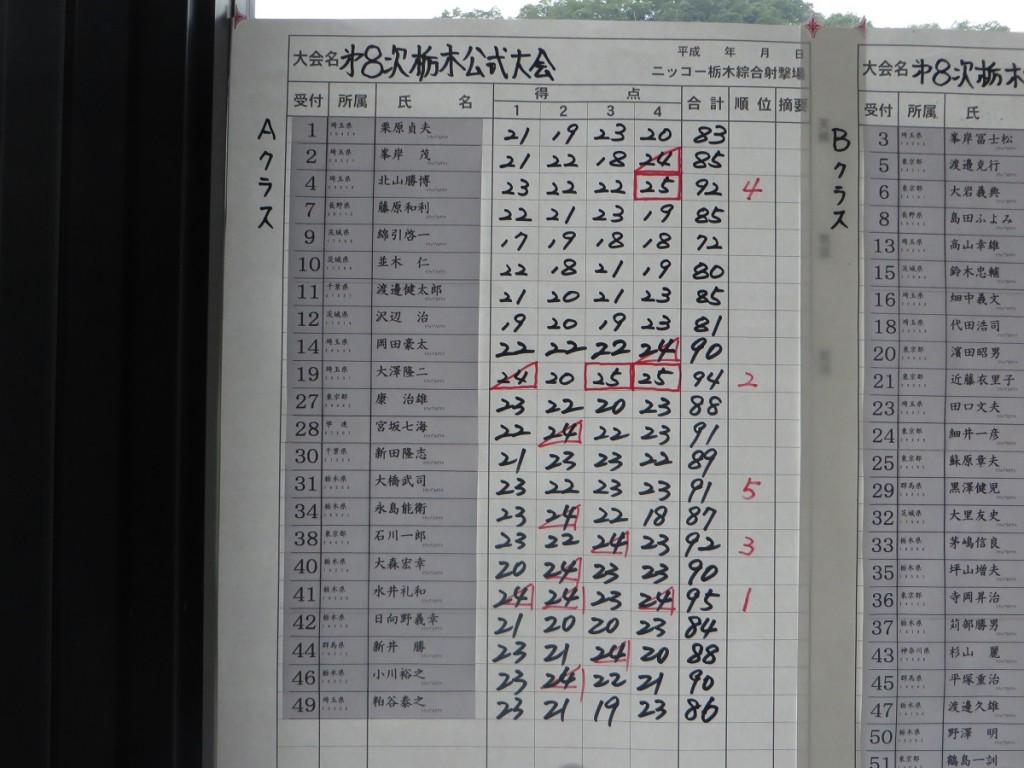 大会名 第8次栃木公式大会
平成 年 月 日
ニッコー栃木綜合射撃場
受付 所属 氏 名 得 点 合計 順位 摘要
1 2 3 4
Aクラス
1 埼玉県 栗原貞夫 21 19 23 20 83
2 埼玉県 峯岸 茂 21 22 18 24 85
4 埼玉県 北山勝博 23 22 22 25 92 4
7 長野県 藤原和利 22 21 23 19 85
9 茨城県 綿引啓一 17 19 18 18 72
10 茨城県 並木 仁 22 18 21 19 80
11 千葉県 渡邊健太郎 21 20 21 23 85
12 茨城県 沢辺 治 19 20 19 23 81
14 埼玉県 岡田豪太 22 22 22 24 90
19 埼玉県 大澤隆二 24 20 25 25 94 2
27 東京都 康 治雄 23 22 20 23 88
28 学連 宮坂七海 22 24 22 23 91
30 千葉県 新田隆志 21 23 23 22 89
31 栃木県 大橋武司 23 22 23 23 91 5
34 栃木県 永島能衛 23 24 22 18 87
38 東京都 石川一郎 23 22 24 23 92 3
40 栃木県 大森宏幸 20 24 23 23 90
41 栃木県 水井礼和 24 24 23 24 95 1
42 栃木県 日向野義幸 21 20 20 23 84
44 群馬県 新井 勝 23 21 24 20 88
46 栃木県 小川裕之 23 24 22 21 90
49 埼玉県 粕谷泰之 23 21 19 23 86
大会名 第8次栃木
受付 所属 氏
Bクラス
3 埼玉県 峯岸冨士松
5 東京都 渡邊克行
6 東京都 大岩義典
8 長野県 島田ふよみ
13 埼玉県 高山幸雄
15 茨城県 鈴木忠輔
16 埼玉県 畑中義文
18 埼玉県 代田浩司
20 東京都 濱田昭男
21 東京都 近藤衣里子
23 埼玉県 田口文夫
24 東京都 細井一彦
25 東京都 蘇原章夫
29 群馬県 黒澤健児
32 茨城県 大里友史
33 栃木県 茅嶋信良
35 栃木県 坪山増夫
36 東京都 寺岡昇治
37 栃木県 苅部勝男
43 神奈川県 杉山 麗
45 群馬県 平塚重治
47 栃木県 渡邊久雄
50 栃木県 野澤 明
51 栃木県 鶴島一訓